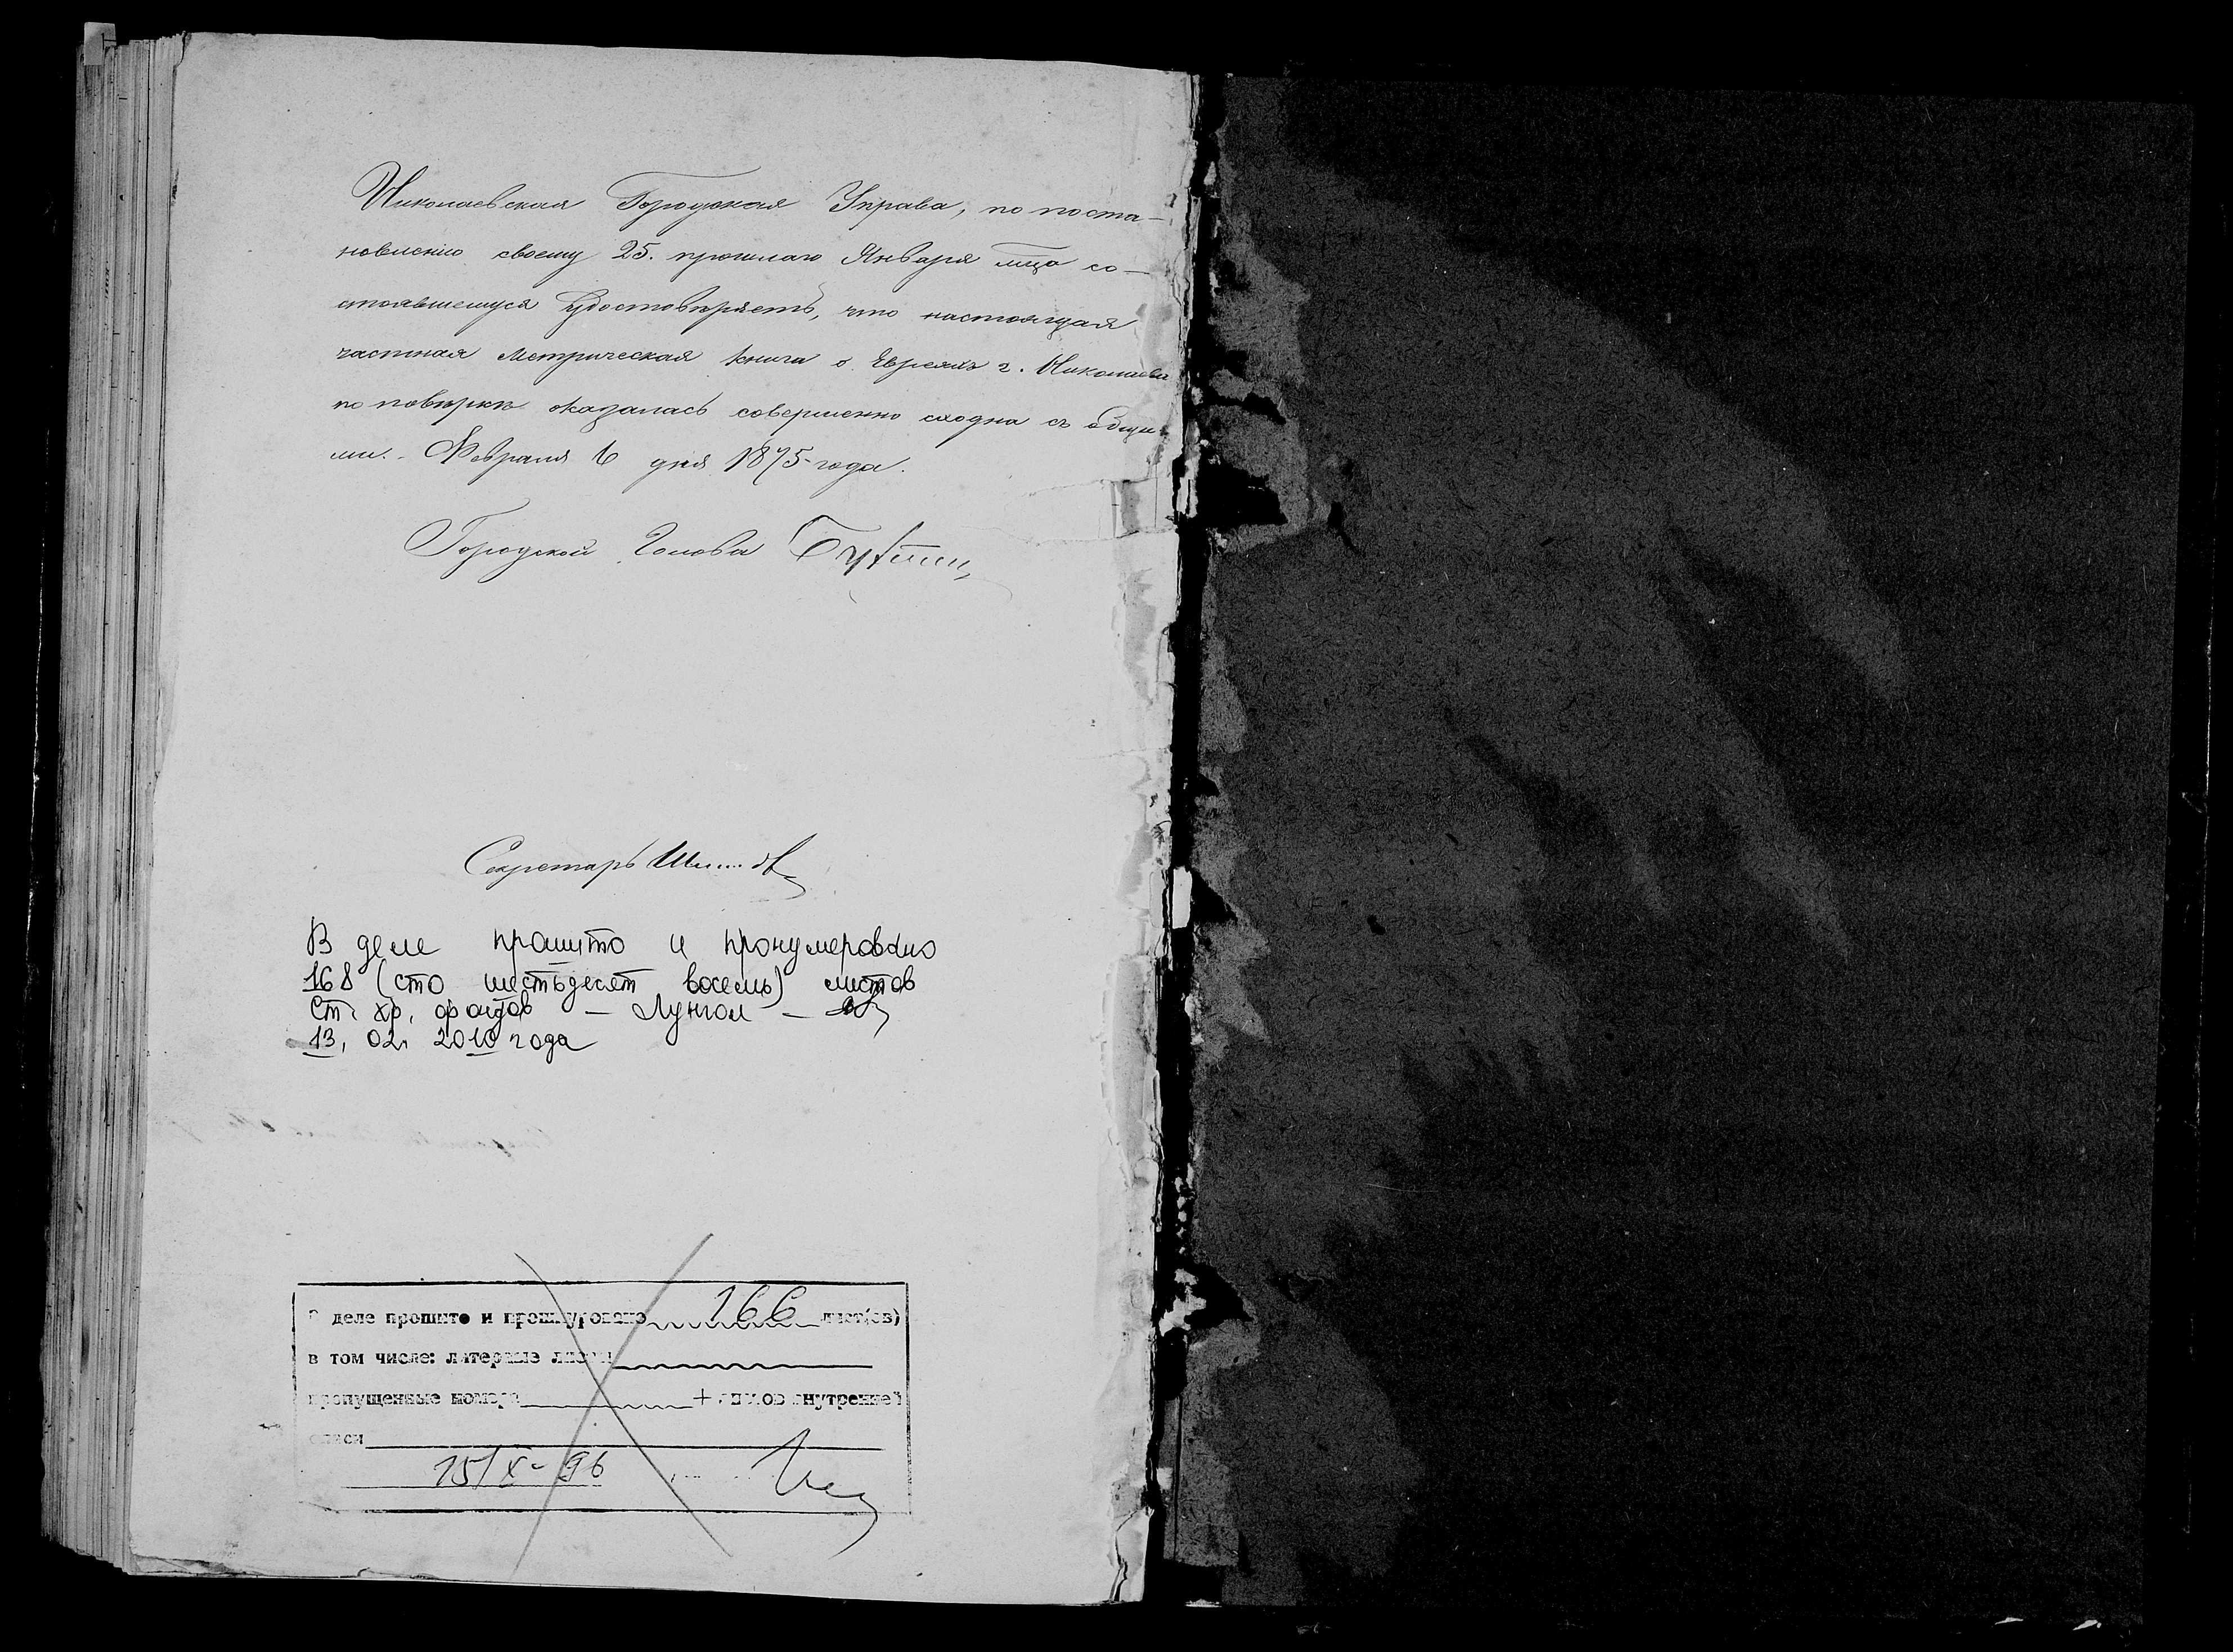 Николаевская Городская Управа, по поста-
новленію своему 25. прошлаго Января м-ца со-
стоявшемуся удостовѣряетъ, что настоящая
частная Метрическая книга о Евреяхъ г. Николаева
по повѣркѣ оказалась совершенно сходна съ общи-
ми. Февраля 6 дня 1875 года.
Городской Голова
Секретарь
В деле прошито и пронумеровано
168 (сто шестьдесят восемь) листов
Ст. хр. фондов —
13. 02. 2010 года
В деле прошито и прошнуровано 166 лист(ов)
в том числе: литерные листы
пропущенные номера + листов внутренней
описи
15/X-96